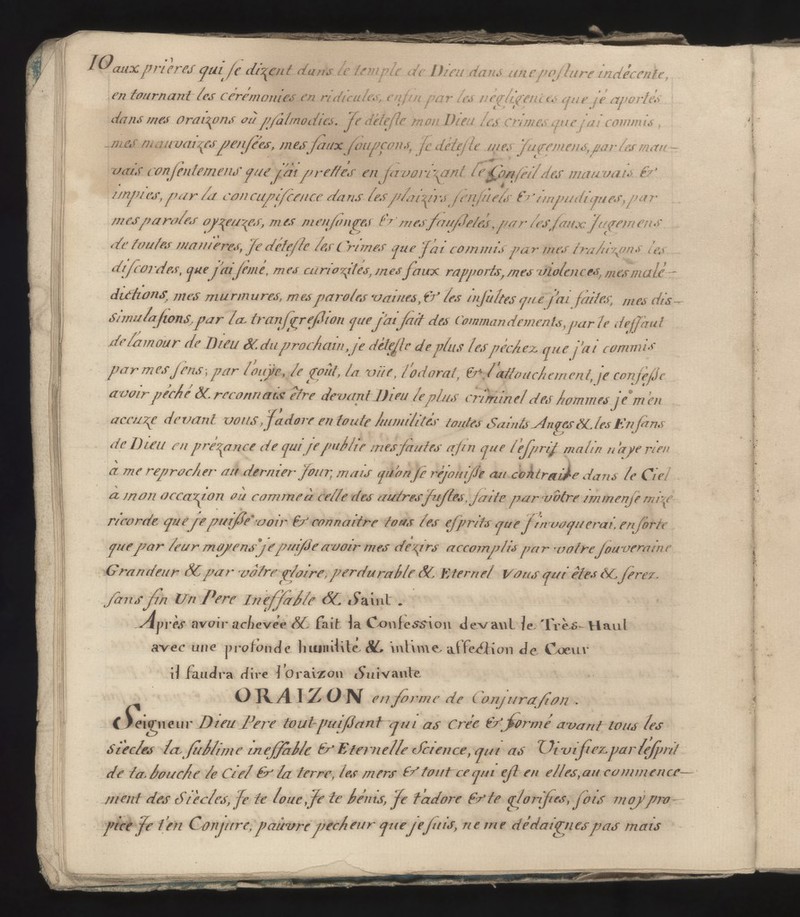 10
aux prières qui se dizent dans le temple de Dieu dans une posture indécente,
en tournant les cérémonies en ridicules, enfin par les négligences que jé aportés
dans mes oraizons où psalmodies. Je déteste mon Dieu les crimes que j'ai commis,
mes mauvaizes pensées, mes faux soupçons, Je déteste mes Jugemens, par les mau-
vais consentemens que j'ai prettés en favorizant le Conseil des mauvais &
impies, par la concupiscence dans les plaizirs sensuels & impudiques, par
mes paroles oyzeuzes, mes mensonges & mes faußetés, par les faux Jugemens
de toutes manières, Je déteste les Crimes que J'ai commis par mes trahizons les
discordes, que j'ai semé, mes curiozités, mes faux rapports, mes violences, mes malé-
dictions, mes murmures, mes paroles vaines, & les insultes que j'ai faites, mes dis-
simulasions, par la transgreßion que j'ai fait des Commandements, par le deffaut
de l'amour de Dieu & du prochain, je déteste de plus les péchez que j'ai commis
par mes sens, par l'ouÿe, le goût, la vüe, l'odorat, & l'attouchement, je confeße
avoir péché & reconnais être devant Dieu le plus criminel des hommes je m'en
accuze devant vous, J'adore en toute humilités toutes Saints Anges & les Enfans
de Dieu en prézance de qui je publie mes fautes afin que l'esprit malin n'aye rien
à me reprocher au dernier Jour, mais qu'on se réjouiße au contraire dans le Ciel
à mon occazion où comme à celle des autres Justes, faite par vôtre immense mizé
ricorde que je puiße voir & connaitre tous les esprits que J'invoquerai, ensorte
que par leur moyens je puiße avoir mes dézirs accomplis par votre souveraine
Grandeur & par vôtre gloire, perdurable & Eternel Vous qui êtes & serez
sans fin Un Pere Ineffable & Saint.
Après avoir achevée & fait la Confession devant le Très-Haut
avec une profonde humilité & intime affection de Cœur
il faudra dire l'Oraizon Suivante
ORAIZON en forme de Conjurasion.
Seigneur Dieu Pere tout-puißant qui as Crée & formé avant tous les
Siècles la sublime ineffable & Eternelle Science, qui as Vivifiez par l'esprit
de ta bouche le Ciel & la terre, les mers & tout ce qui est en elles, au commence-
ment des Siècles, Je te loue, Je te bénis, Je t'adore & te glorifies, sois moy pro-
pice Je t'en Conjure, pauvre pecheur que je suis, ne me dédaignes pas mais